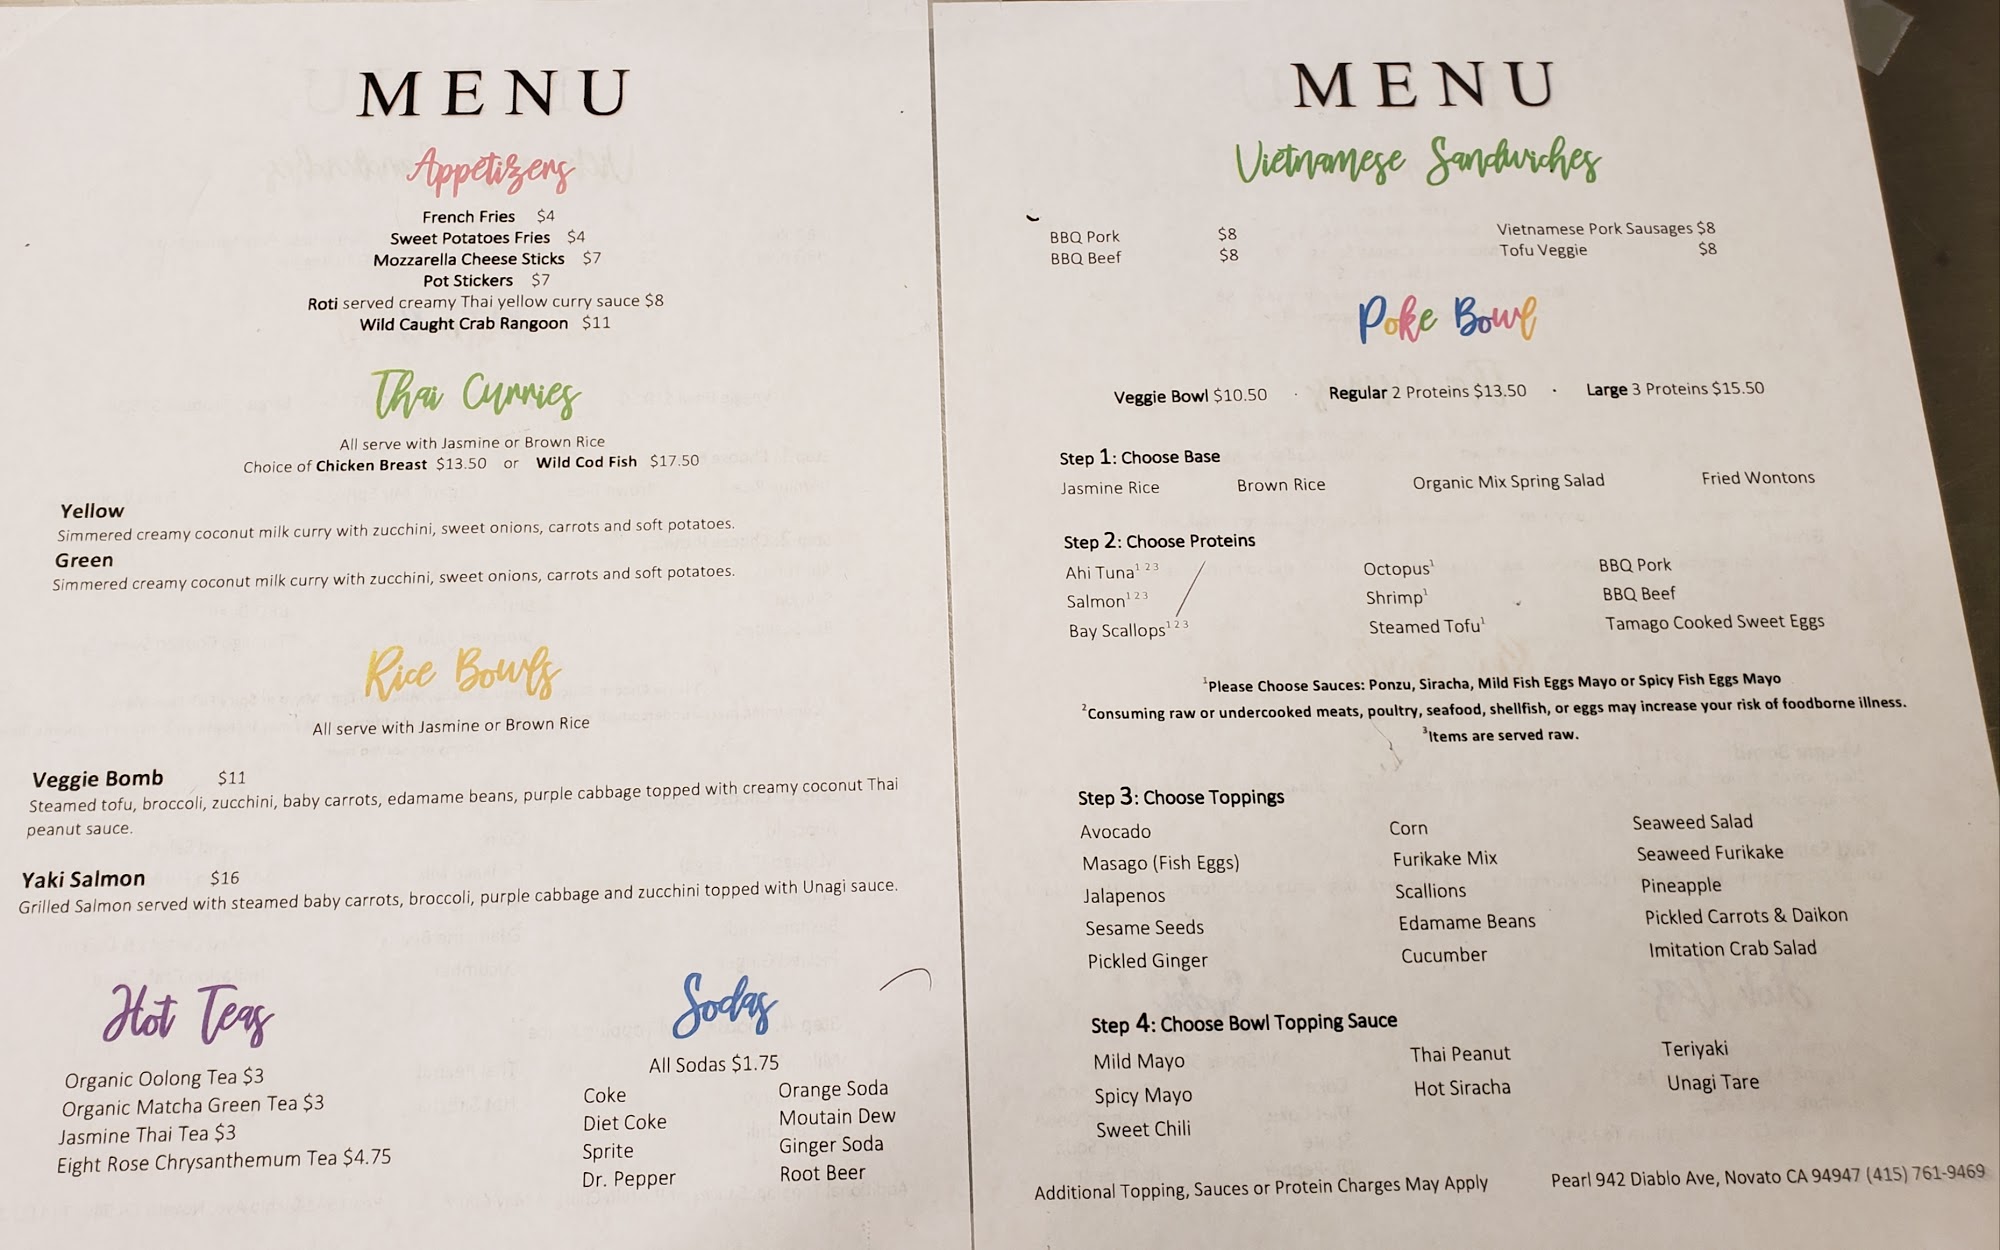 MENU
Appetizers
French Fries $4
Sweet Potatoes Fries $4
Mozzarella Cheese Sticks $7
Pot Stickers $7
Roti served creamy Thai yellow curry sauce $8
Wild Caught Crab Rangoon $11
Thai Curries
All serve with Jasmine or Brown Rice
Choice of Chicken Breast $13.50 or Wild Cod Fish $17.50
Yellow
Simmered creamy coconut milk curry with zucchini, sweet onions, carrots and soft potatoes.
Green
Simmered creamy coconut milk curry with zucchini, sweet onions, carrots and soft potatoes.
Rice Bowls
All serve with Jasmine or Brown Rice
Veggie Bomb $11
Steamed tofu, broccoli, zucchini, baby carrots, edamame beans, purple cabbage topped with creamy coconut Thai
peanut sauce.
Yaki Salmon $16
Grilled Salmon served with steamed baby carrots, broccoli, purple cabbage and zucchini topped with Unagi sauce.
Hot Teas
Organic Oolong Tea $3
Organic Matcha Green Tea $3
Jasmine Thai Tea $3
Eight Rose Chrysanthemum Tea $4.75
Sodas
All Sodas $1.75
Coke Orange Soda
Diet Coke Moutain Dew
Sprite Ginger Soda
Dr. Pepper Root Beer
MENU
Vietnamese Sandwiches
BBQ Pork $8 Vietnamese Pork Sausages $8
BBQ Beef $8 Tofu Veggie $8
Poke Bowl
Veggie Bowl $10.50 · Regular 2 Proteins $13.50 · Large 3 Proteins $15.50
Step 1: Choose Base
Jasmine Rice Brown Rice Organic Mix Spring Salad Fried Wontons
Step 2: Choose Proteins
Ahi Tuna¹ ² ³ Octopus¹ BBQ Pork
Salmon¹ ² ³ Shrimp¹ BBQ Beef
Bay Scallops¹ ² ³ Steamed Tofu¹ Tamago Cooked Sweet Eggs
¹Please Choose Sauces: Ponzu, Siracha, Mild Fish Eggs Mayo or Spicy Fish Eggs Mayo
²Consuming raw or undercooked meats, poultry, seafood, shellfish, or eggs may increase your risk of foodborne illness.
³Items are served raw.
Step 3: Choose Toppings
Avocado Corn Seaweed Salad
Masago (Fish Eggs) Furikake Mix Seaweed Furikake
Jalapenos Scallions Pineapple
Sesame Seeds Edamame Beans Pickled Carrots & Daikon
Pickled Ginger Cucumber Imitation Crab Salad
Step 4: Choose Bowl Topping Sauce
Mild Mayo Thai Peanut Teriyaki
Spicy Mayo Hot Siracha Unagi Tare
Sweet Chili
Additional Topping, Sauces or Protein Charges May Apply Pearl 942 Diablo Ave, Novato CA 94947 (415) 761-9469